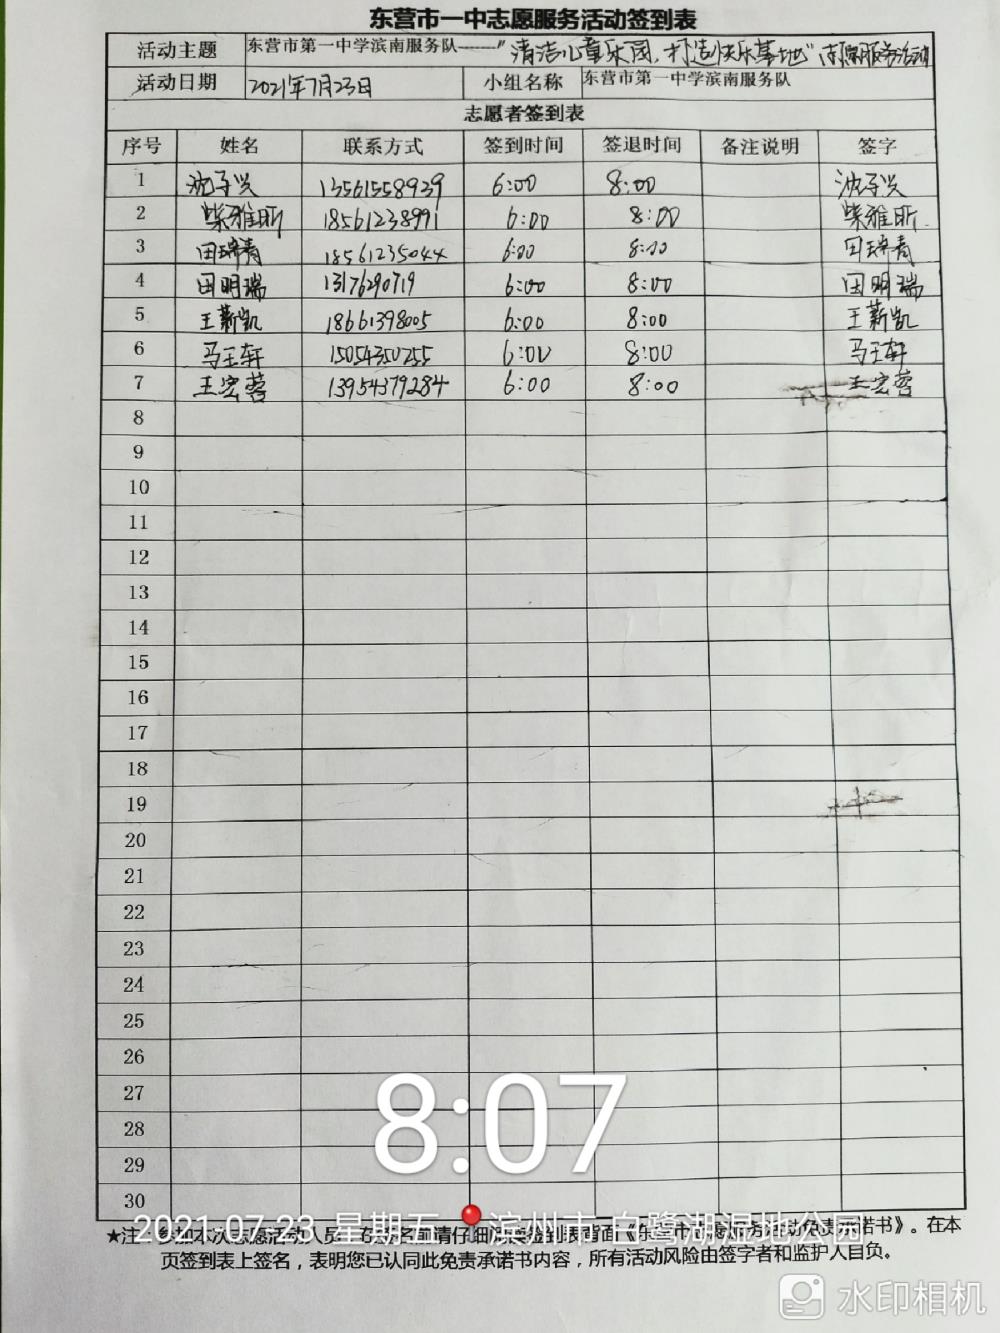 东营市一中志愿服务活动签到表
活动主题 东营市第一中学滨南服务队——"清洁儿童乐园,打造快乐基地"志愿服务活动
活动日期 2021年7月23日 小组名称 东营市第一中学滨南服务队
志愿者签到表
序号 姓名 联系方式 签到时间 签退时间 备注说明 签字
1 沈子兴 13561558939 6:00 8:00 沈子兴
2 柴雅昕 18561238991 6:00 8:00 柴雅昕
3 田瑞青 18561235044 6:00 8:00 田瑞青
4 田明瑞 13176290719 6:00 8:00 田明瑞
5 王薪凯 18661398005 6:00 8:00 王薪凯
6 马玉轩 15054350255 6:00 8:00 马玉轩
7 王宏蓉 13954379284 6:00 8:00 王宏蓉
8
9
10
11
12
13
14
15
16
17
18
19
20
21
22
23
24
25
26
27
28
29
30
8:07
2021.07.23 星期五 滨州市·白鹭湖湿地公园
★注:参加本次志愿活动人员 请仔细阅读签到表背面《东营市志愿服务活动免责承诺书》。在本
页签到表上签名,表明您已认同此免责承诺书内容,所有活动风险由签字者和监护人自负。
水印相机